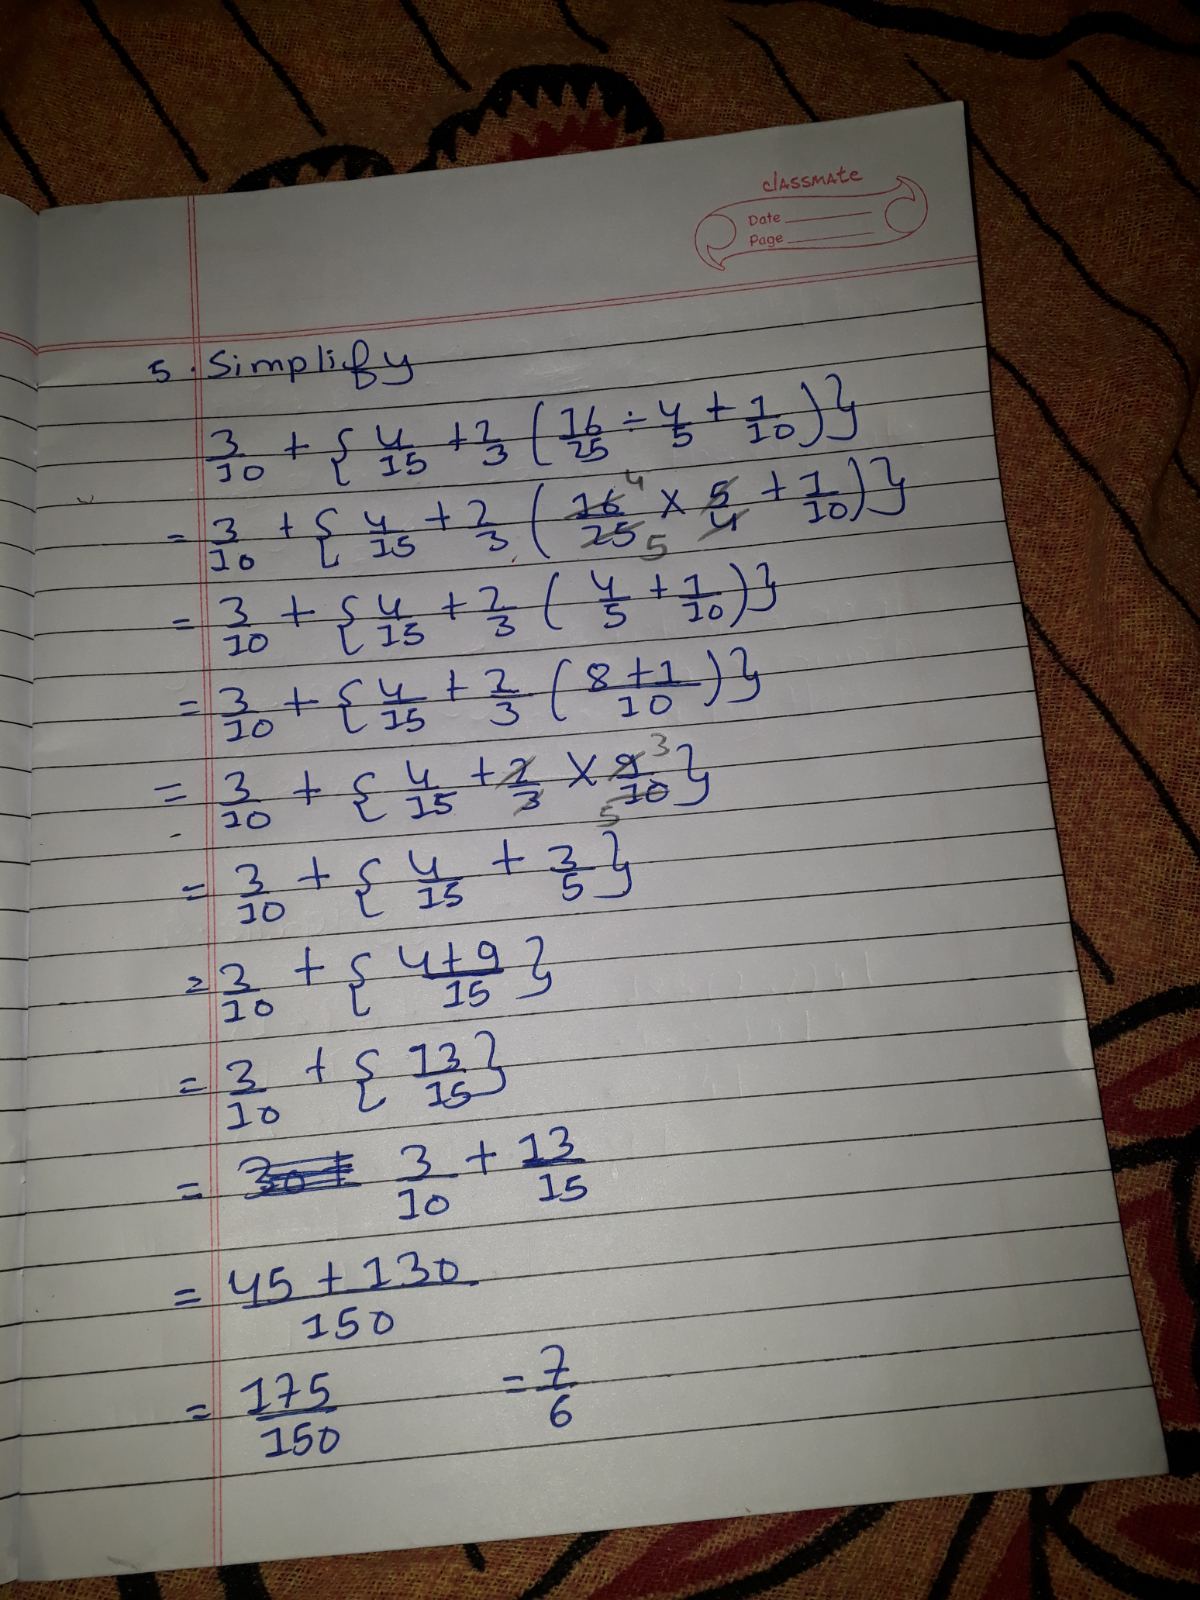 classmate
Date
Page
5. Simplify
3/10 + { 4/15 + 2/3 ( 16/25 ÷ 4/5 + 1/10 ) }
= 3/10 + { 4/15 + 2/3 ( 16/25 4 5 × 5/4 + 1/10 ) }
= 3/10 + { 4/15 + 2/3 ( 4/5 + 1/10 ) }
= 3/10 + { 4/15 + 2/3 ( 8+1/10 ) }
= 3/10 + { 4/15 + 2/3 × 9/10 3 5 }
= 3/10 + { 4/15 + 3/5 }
= 3/10 + { 4+9/15 }
= 3/10 + { 13/15 }
= 3/10 + 13/15
= 45 + 130/150
= 175/150 = 7/6